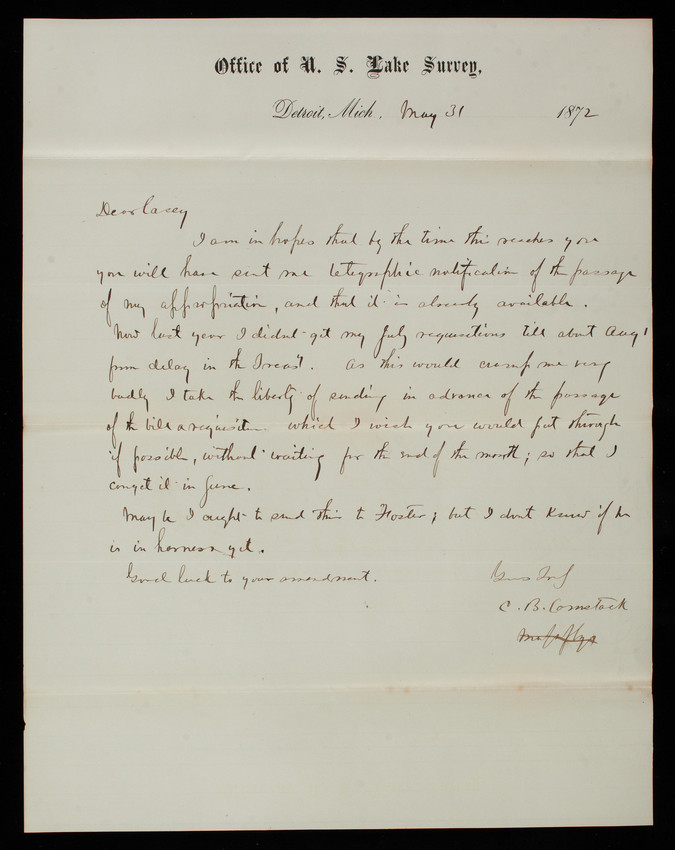 Office of U. S. Lake Survey,
Detroit, Mich., May 31 1872
Dear Casey
I am in hopes that by the time this reaches you
you will have sent me telegraphic notification of the passage
of my appropriation, and that it is already available.
Now last year I didnt get my July requisitions till about Aug 1
from delay in the Treasy. As this would cramp me very
badly I take the liberty of sending in advance of the passage
of the bill a requisition which I wish you would put through
if possible, without waiting for the end of the month; so that I
can get it in June.
May be I ought to send this to Foster; but I dont know if he
is in harness yet.
Good luck to your amendment.
Yours Truly
C. B. Comstock